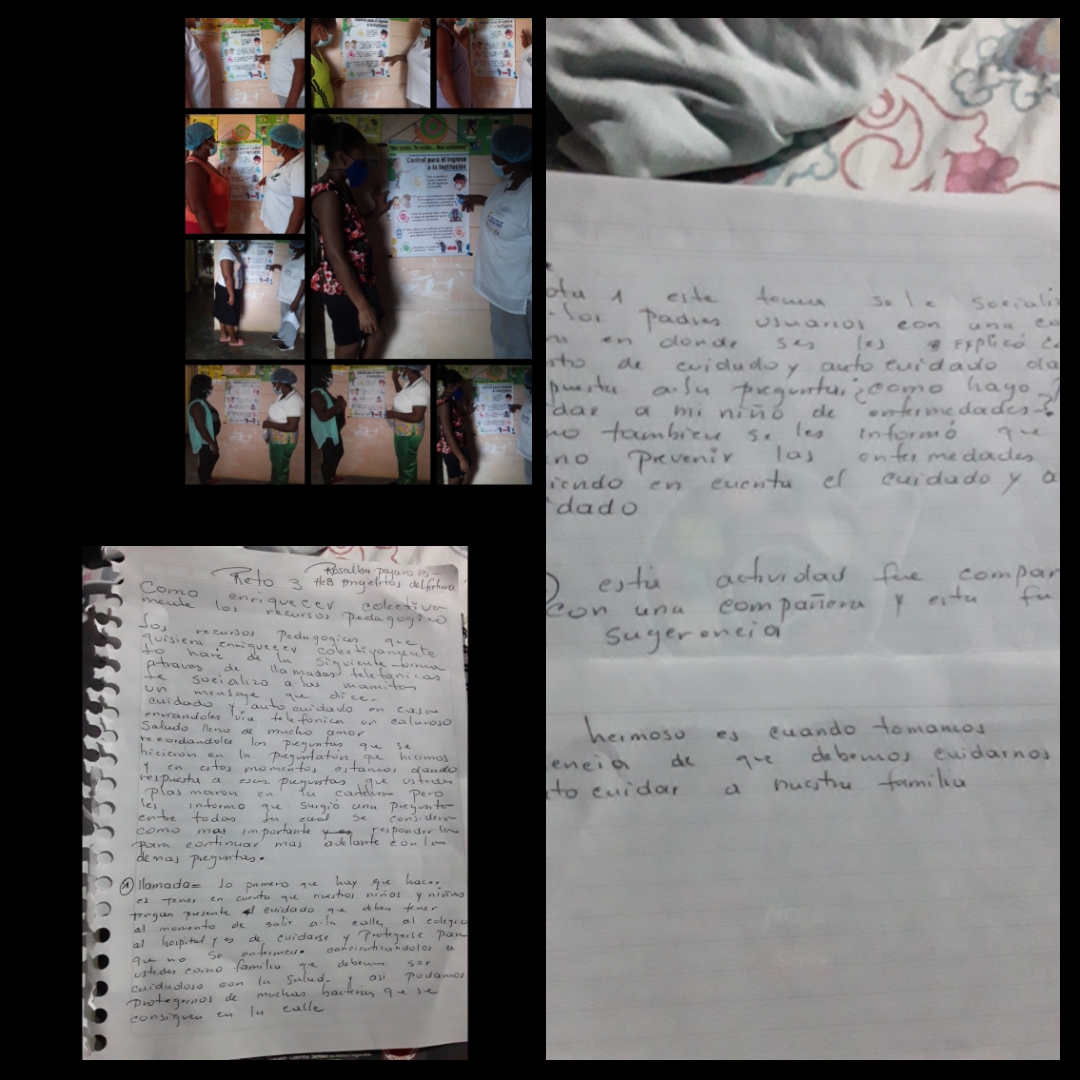 Me cuido, Te cuido... Nos cuidamos
Control para el ingreso
a la Institución
Reto 3 Rosalba pajaro B
HCB Angelitos del futuro
Como enriquecer colectiva
mente los recursos pedagogico
los recursos Pedagogicos que
quisiera enriquecer colectivamente
lo haré de la siguiente forma
atraves de llamadas telefonicas
le socializo a las mamitas
un mensaje que dice
cuidado y auto cuidado en casa
enviandoles via telefónica un caluroso
saludo lleno de mucho amor
recordandoles las preguntas que se
hicieron en la que hicimos
y en estos momentos estamos dando
respuesta a esas preguntas que ustedes
plasmaron en la cartelera pero
les informo que surgió una pregunta
entre todas la cual se considera
como mas importante responder la
para continuar mas adelante con las
demas preguntas.
1 llamada= lo primero que hay que hacer
es tener en cuenta que nuestros niños y niñas
tengan presente el cuidado que deben tener
al momento de salir a la calle, al colegio
al hospital y es de cuidarse y Protegerse para
que no se enfermen. concientizandolos a
ustedes como familia que debemos ser
cuidadoso con la salud y asi podamos
protegernos de muchas bacterias que se
consiguen en la calle
otu 1 este tema se le sociali
los padres usuarios con una
en donde ses les explicó
to de cuidado y auto cuidado da
puesta a su pregunta ¿como hago
dar a mi niño de enfermedades?
no tambien se les informó que
no prevenir las enfermedades
iendo en cuenta el cuidado y a
dado
esta actividad fue compar
con una compañera y esta fu
sugerencia
hermoso es cuando tomamos
encia de que debemos cuidarnos
to cuidar a nuestra familia